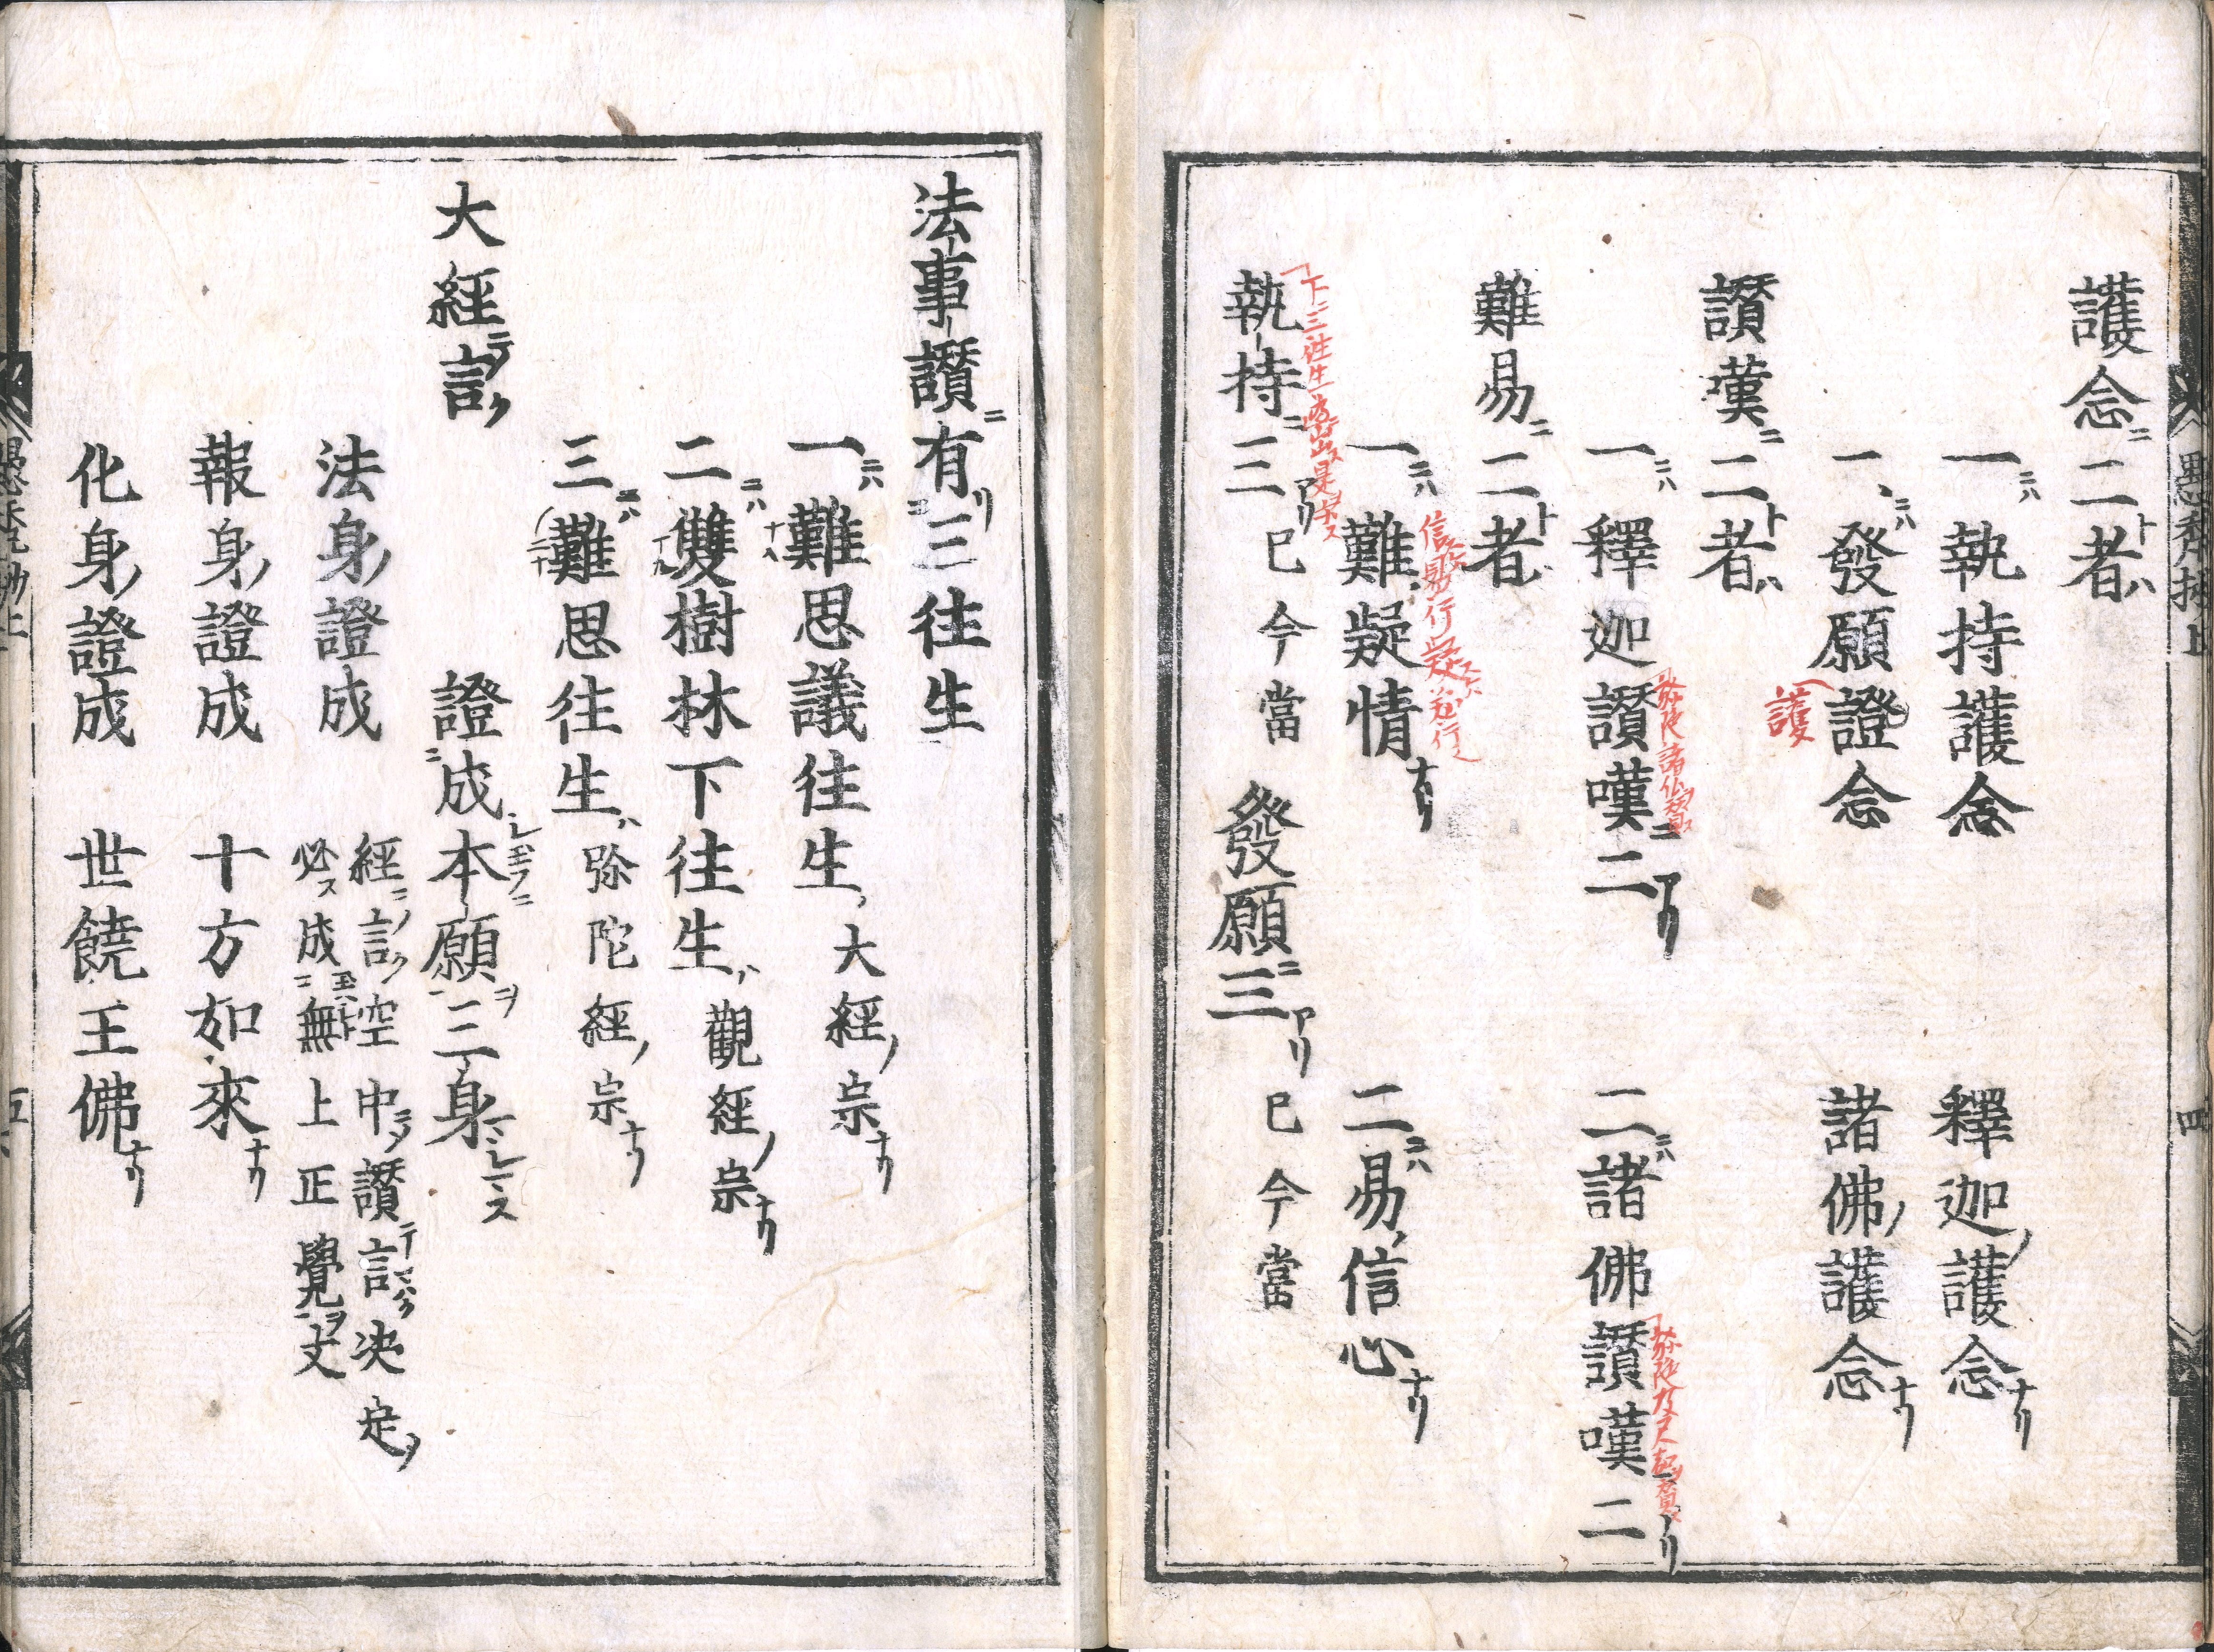 護念ニ二ト者ハ
一ニハ執持護念　釋迦ノ護念ナリ
一ニハ發願證念　諸佛ノ護念ナリ
護
讃嘆ニ二ト者ハ
一ニハ釋迦讃嘆ニ二アリ　二ニハ諸佛讃嘆ニ二アリ
難易ニ二ト者ハ
一ニハ難疑情ナリ　二ニハ易信心ナリ
執持ニ三アリ　已今當　發願ニ三アリ　已今當
法事讃ニ有リ二三往生
一ニハ難思議往生ハ大經ノ宗ナリ
十八
二ニハ雙樹林下往生ハ觀經ノ宗ナリ
十九
三ニハ難思往生ハ弥陀經ノ宗ナリ
二十
大經ニテノ言ク　證成本願三身
法身ノ證成　經ニノ言ク空中ニノ讃テ言ク決定ノ
必ス成無上正覺ヲ文
報身ノ證成　十方如來ナリ
化身ノ證成　世饒王佛ナリ
愚禿抄上
四
五